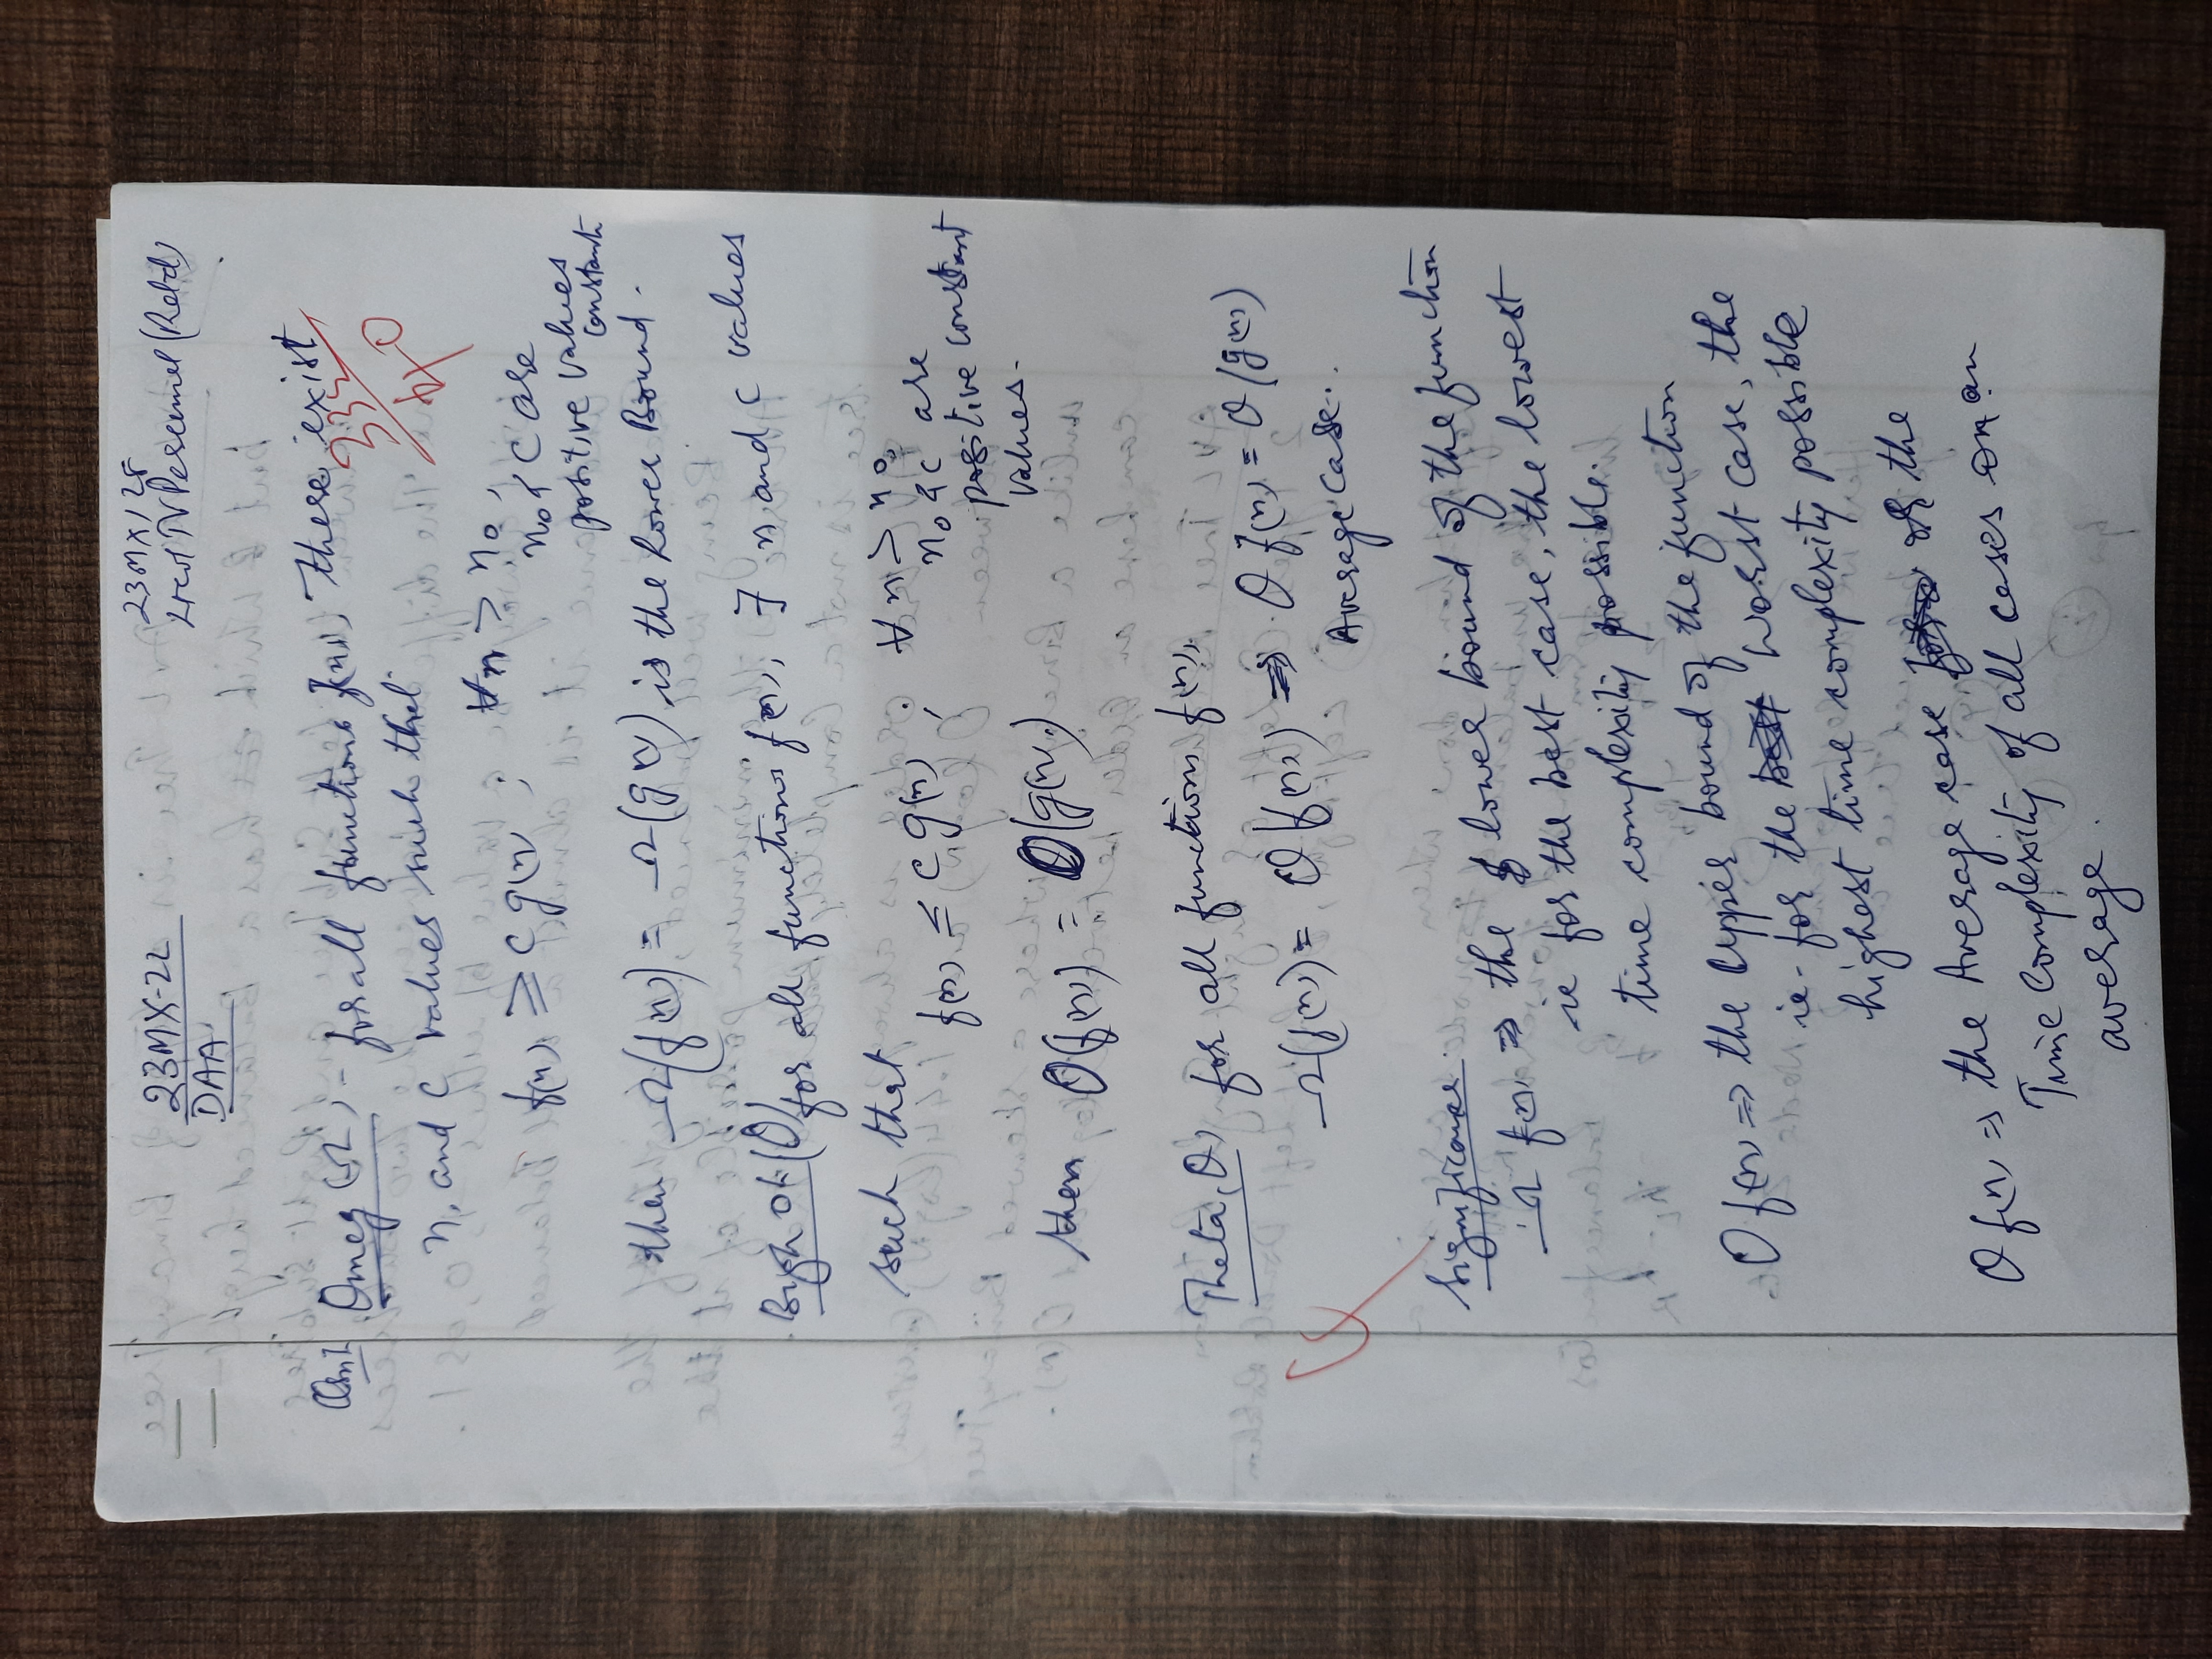 23MX-22
DAA
23MX128
Lt Col TV Perumal (Retd)
33½/40
Qsn1 Omeg (Ω) - for all functions f(n), there exist
n, and c values such that
f(n) ≥ c g(n) ; ∀n > n₀,
n₀ & c are
positive values
constants
then Ω(f(n)) = Ω(g(n)) is the Lower Bound.
Bigh Oh (O) for all functions f(n), ∃ n and c values
such that
f(n) ≤ c g(n) ; ∀n > n₀,
n₀ & c are
positive constant
values.
then O(f(n)) = O(g(n))
Theta, θ) for all functions f(n),
Ω(f(n)) = O(f(n)) ⇒ θ f(n) = θ(g(n))
Average Case.
4
Significance
Ω f(n) ⇒ the lower bound of the function
ie for the best case, the lowest
time complexity possible.
O f(n) ⇒ the Upper bound of the function
ie - for the best Worst case, the
highest time complexity possible
θ f(n) ⇒ the Average case or the
Time Complexity of all cases on an
average.